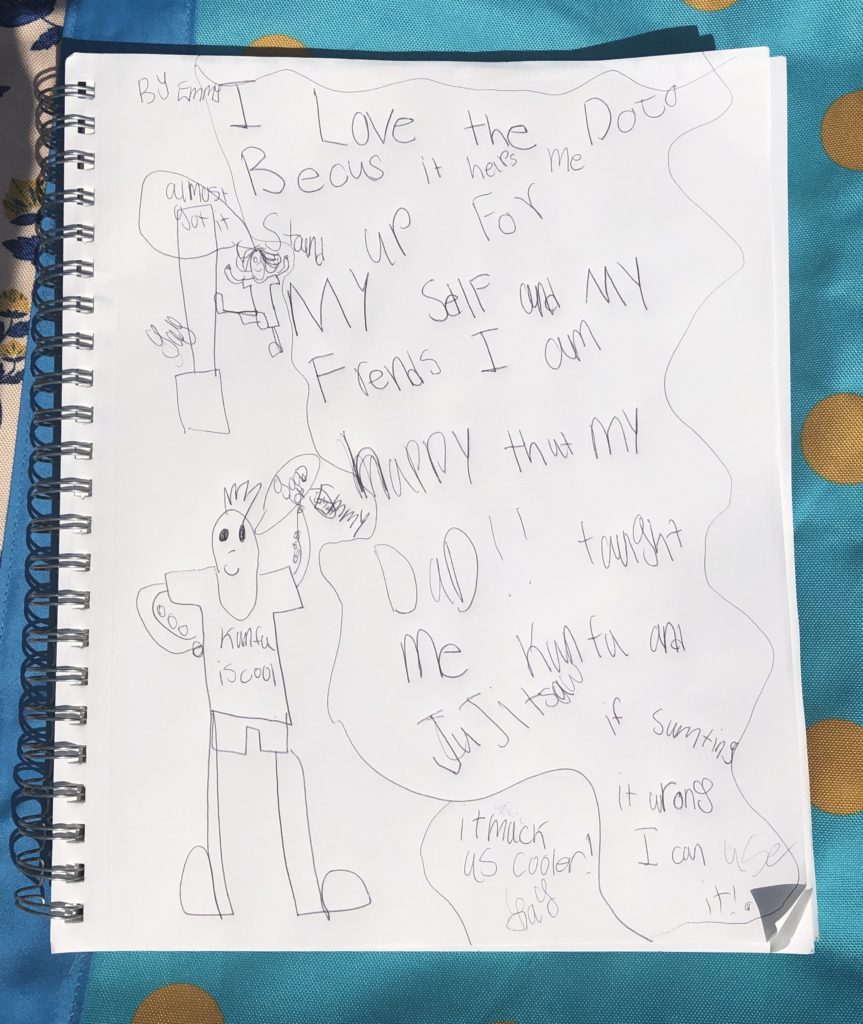 By Emmy
I Love the Doto
Becus it helps me
Stand up For
MY Self and MY
Frends I am
happy that MY
DaD!! taught
me Kunfu and
JuJitsaw
if sumting
it wrong
I can use
it!.
almost
got it
Yay
Jemmy
Kunfu
is cool
itmack
us cooler!
Yay